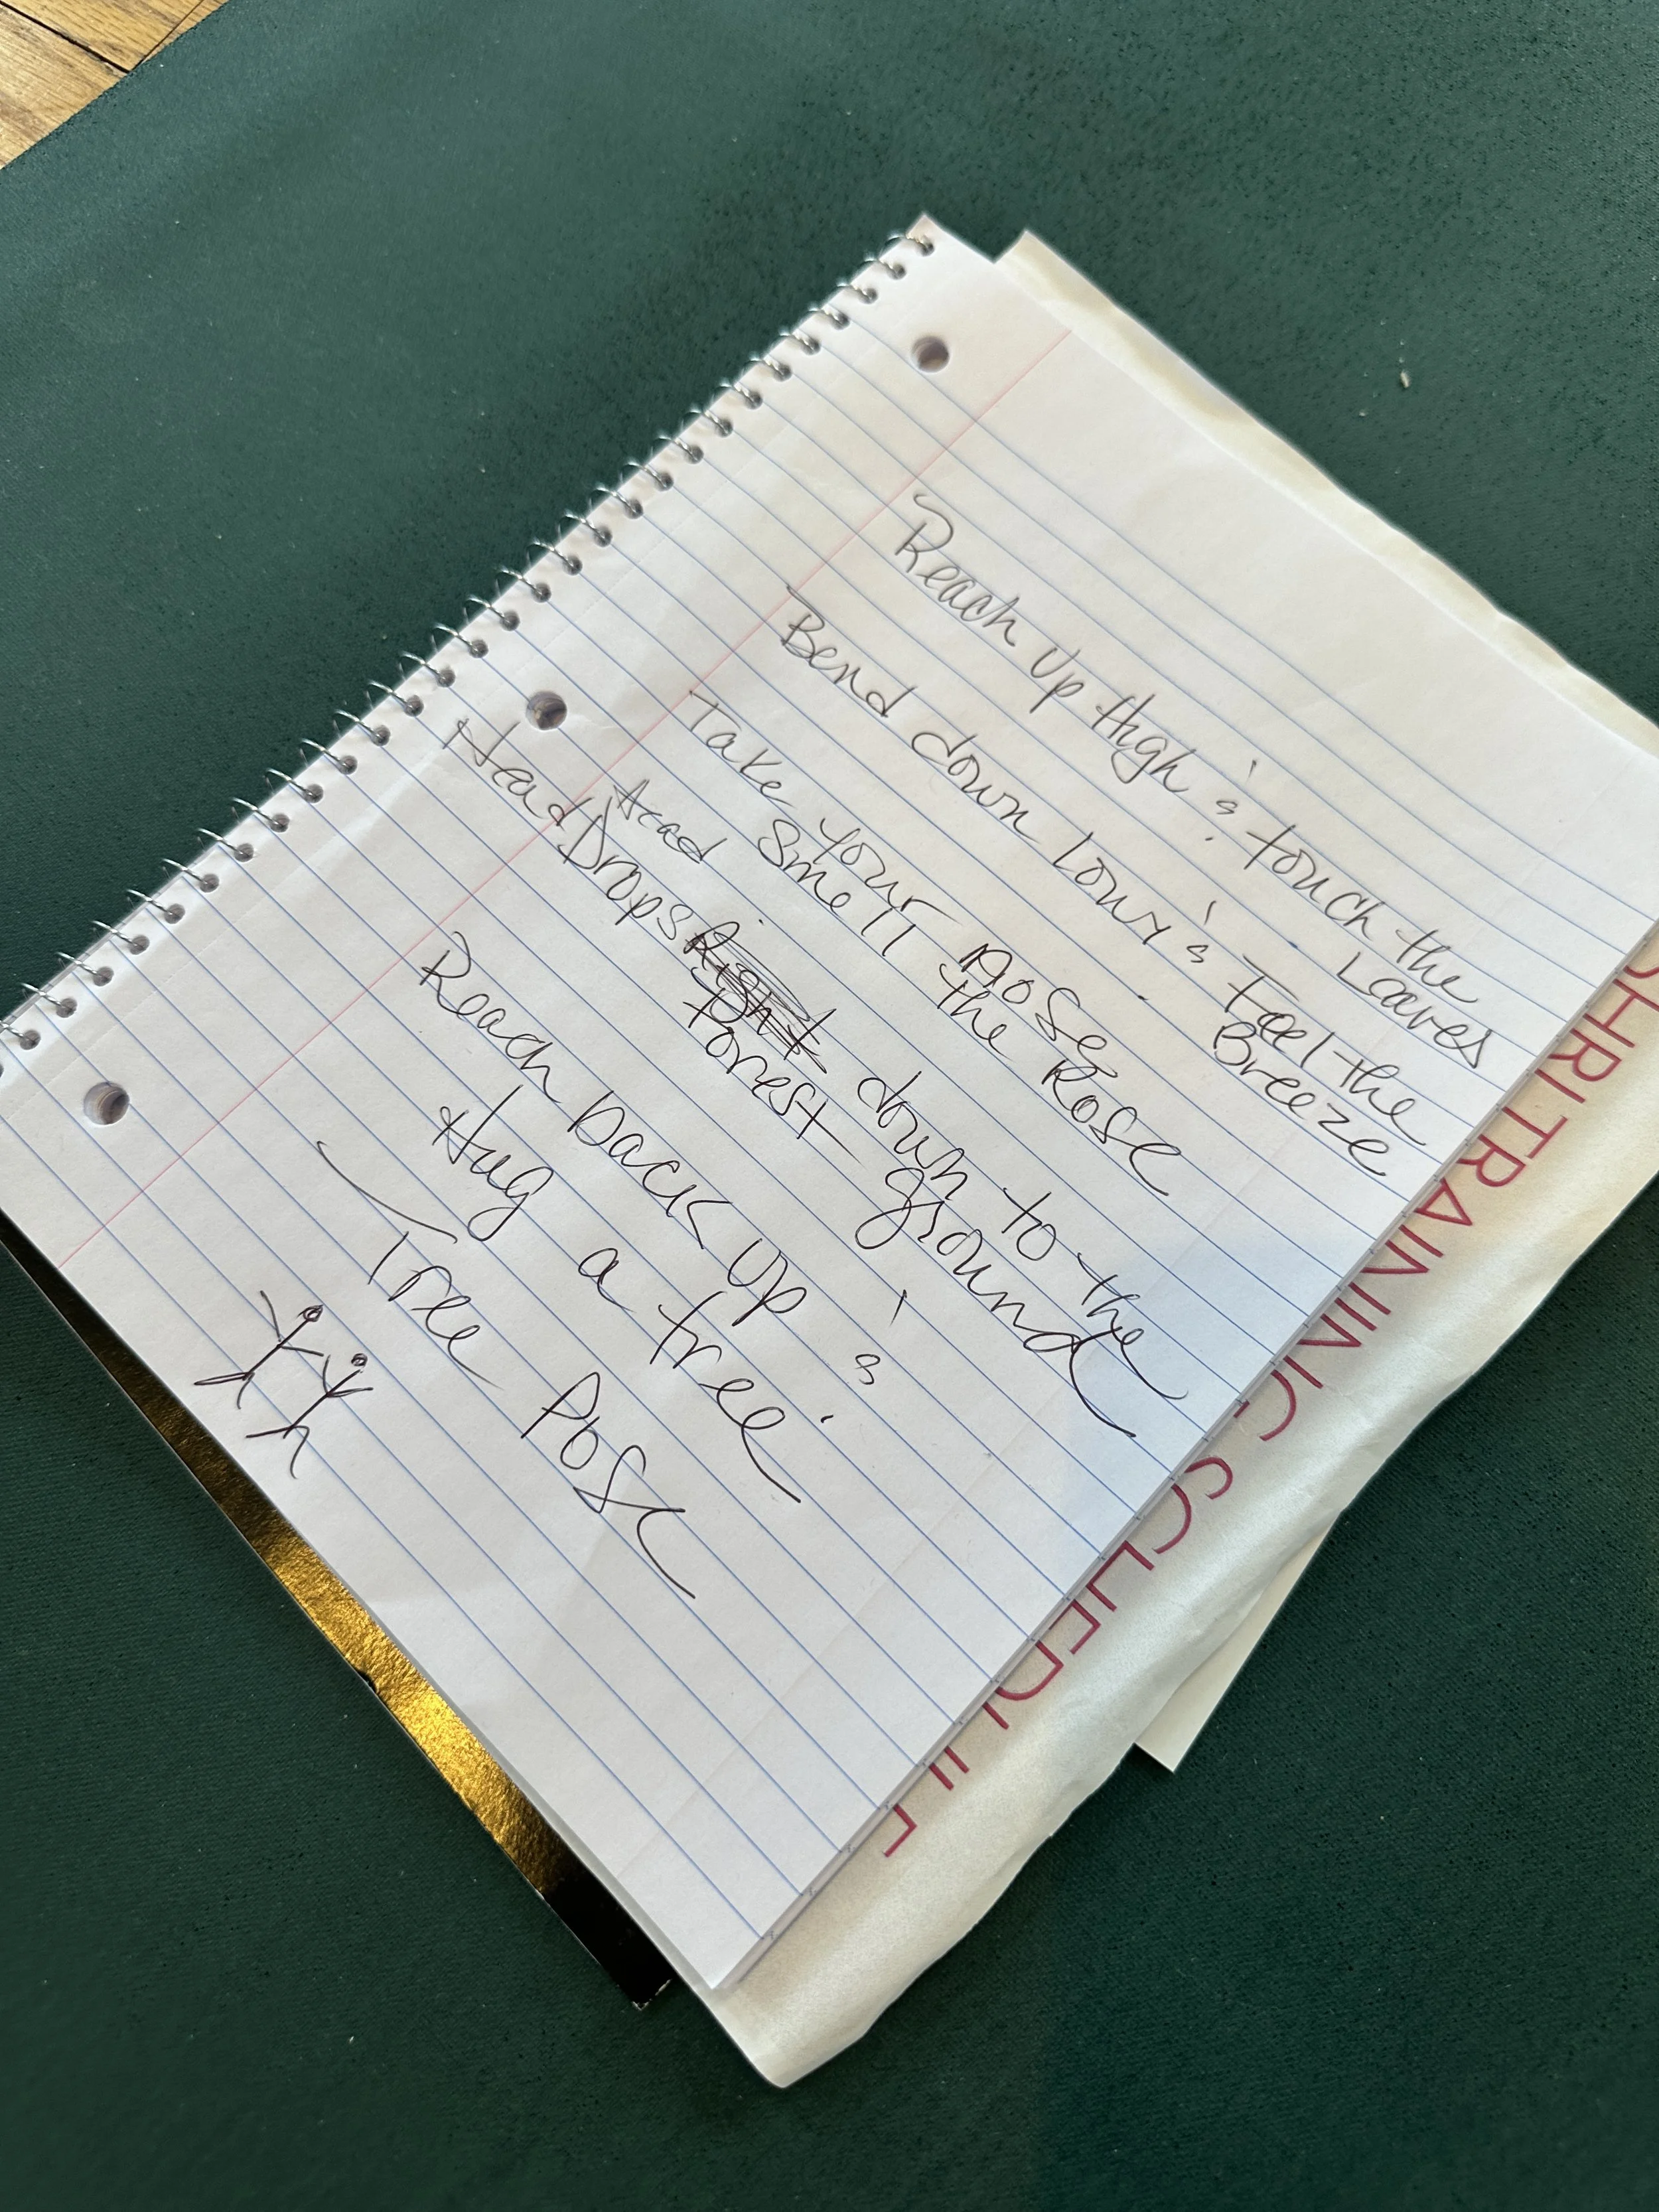 Reach up High & touch the
Leaves
Bend down Low & Feel the
Breeze
Take your nose
Smell the Rose
Head
Head Drops Right down to the
Forest ground
Reach back up &
Hug a tree
Tree Pose
OHRI TRAINING SCHEDULE